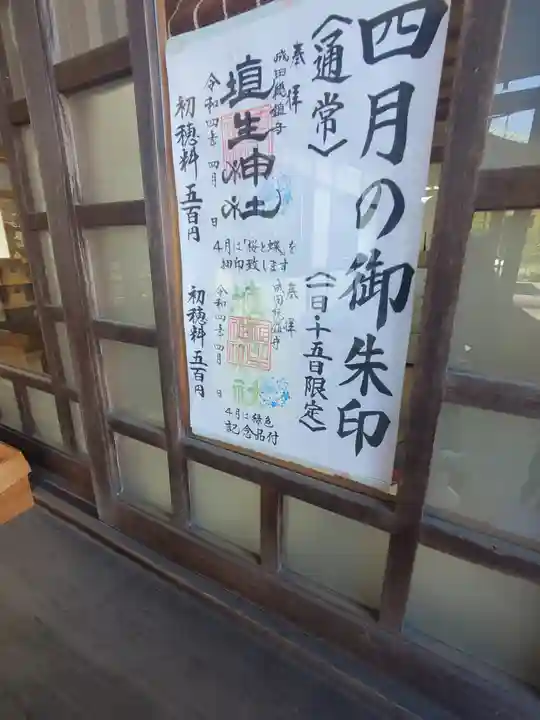 四月の御朱印
〈通常〉
奉拝
成田総鎮守
埴生神社
令和四年 四月 日
初穂料 五百円
4月は「桜と蝶」を
細印致します
〈一日・十五日限定〉
奉拝
成田総鎮守
埴生神社
令和四年 四月 日
初穂料 五百円
4月は緑色
記念品付